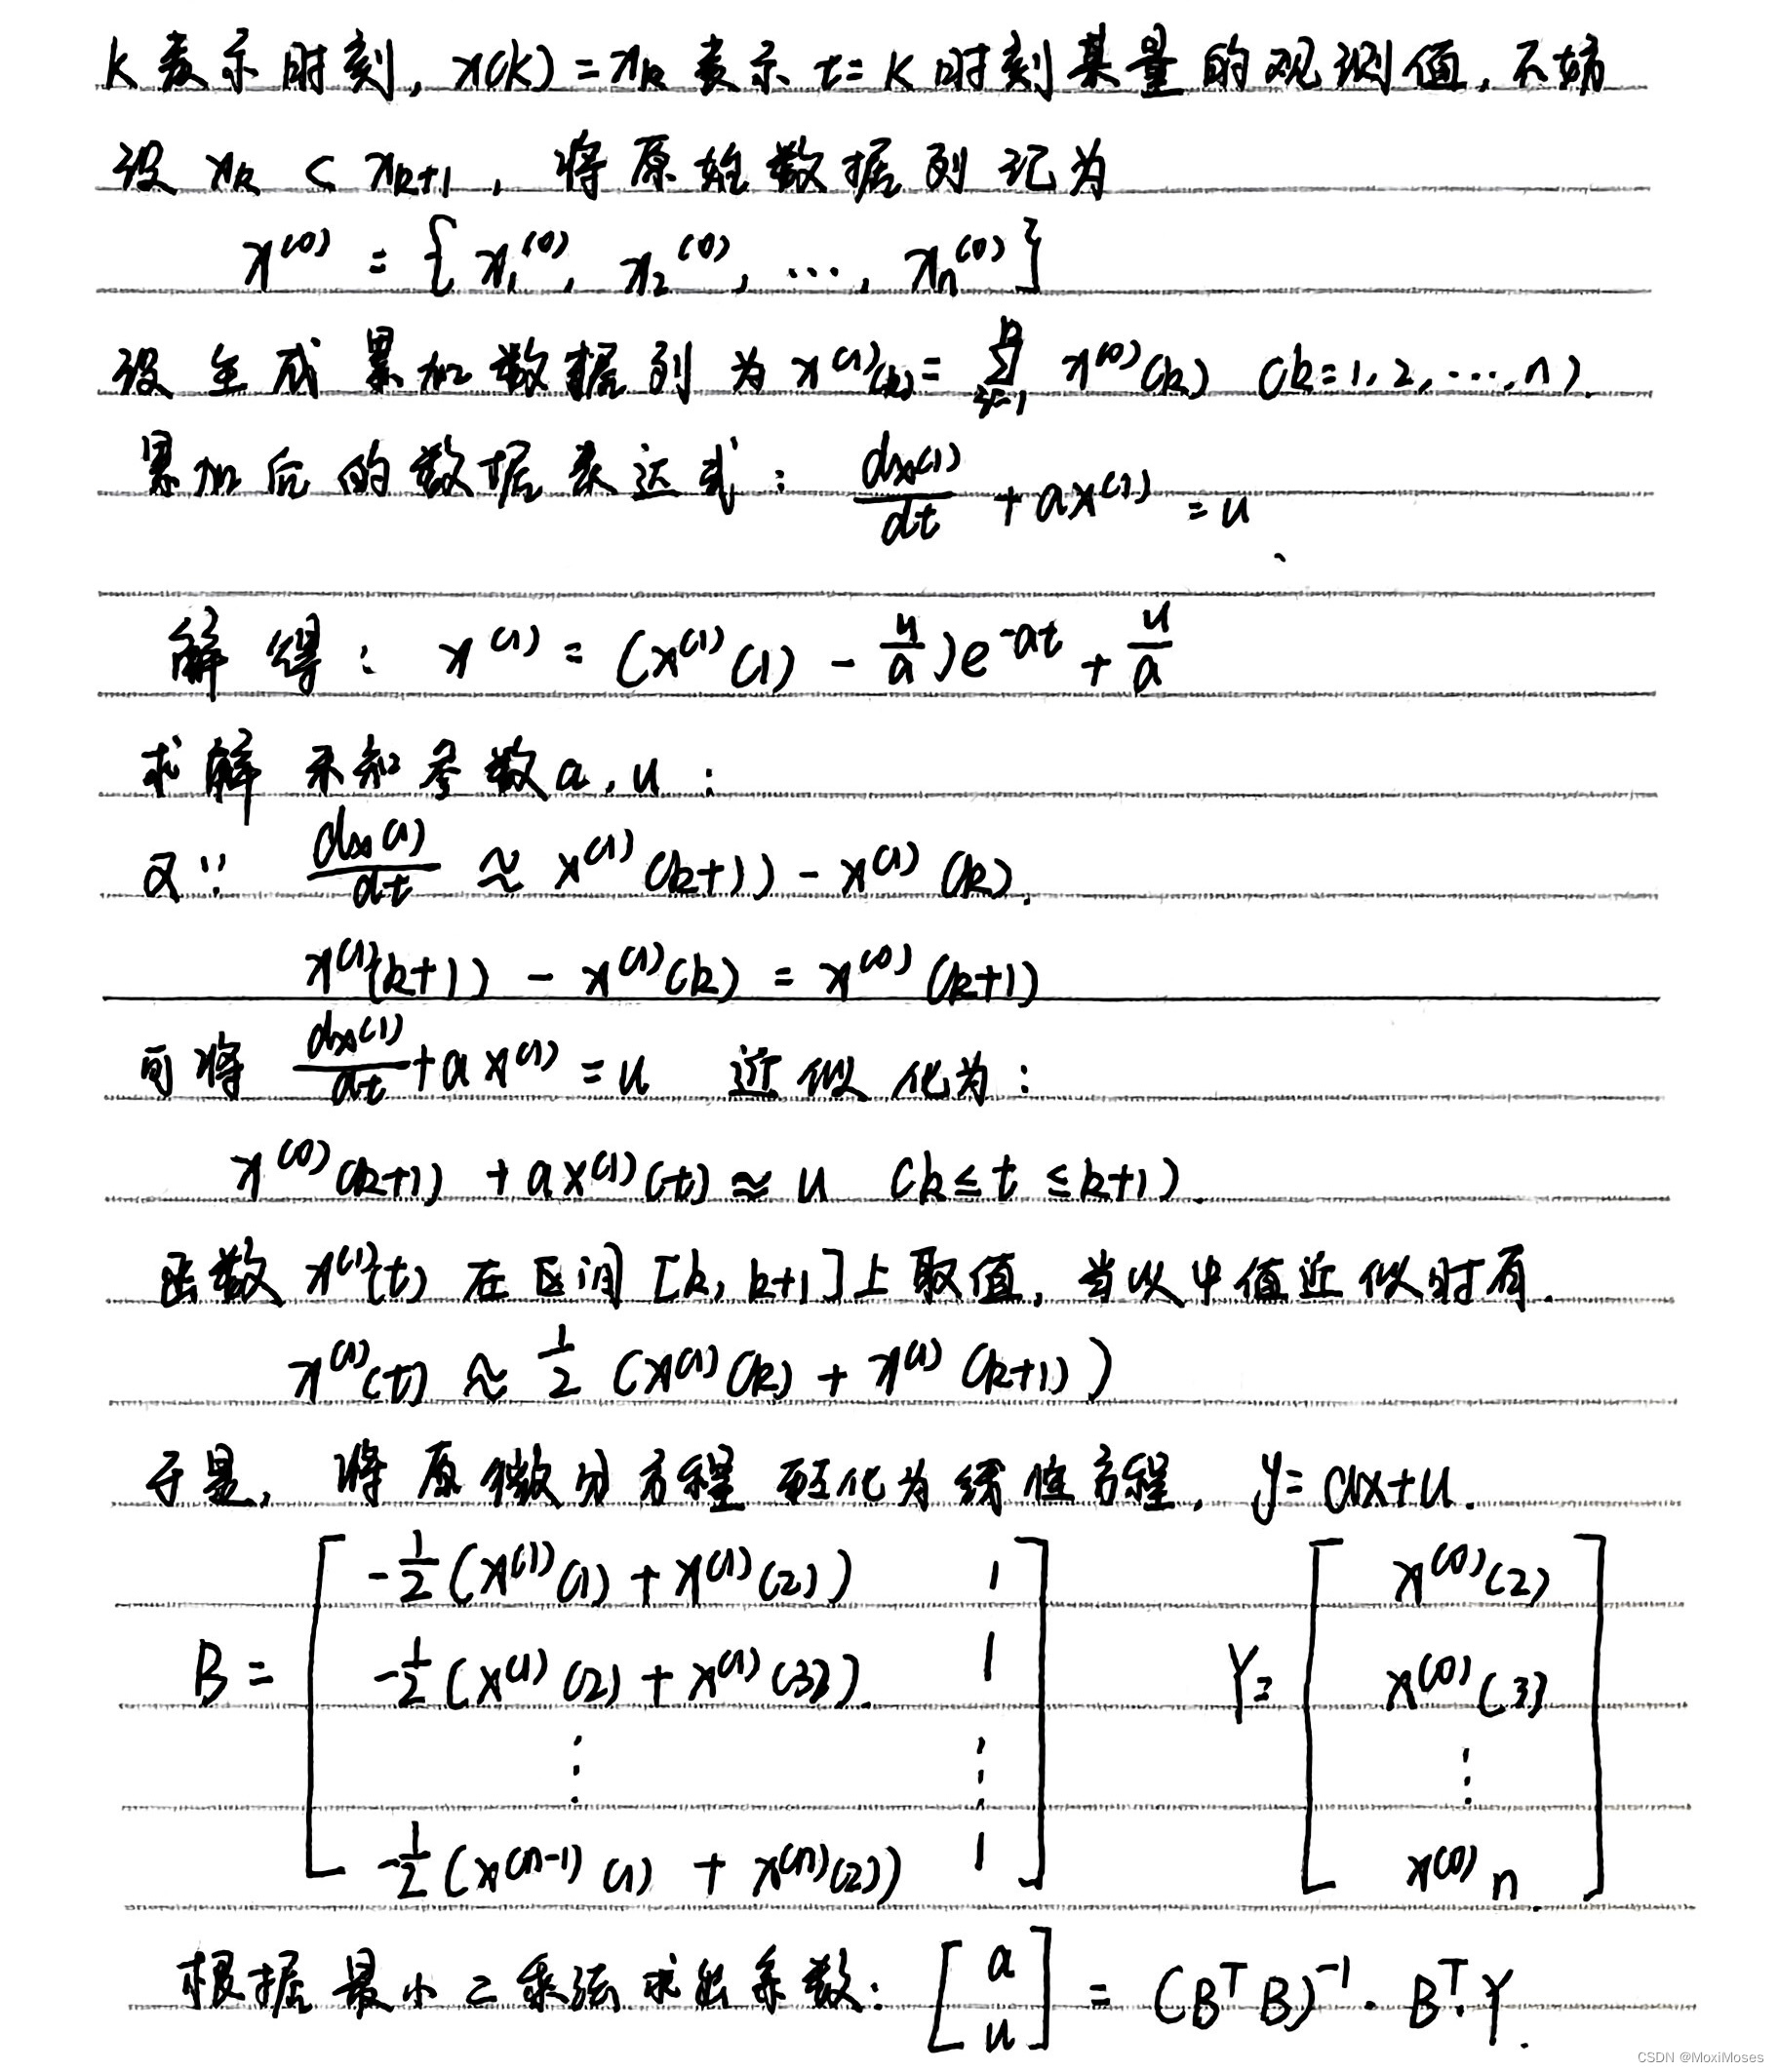 k表示时刻，x(k)=xₖ表示 t=k时刻某量的观测值，不妨
设 xₖ < xₖ₊₁，将原始数据列记为
x⁽⁰⁾ = { x₁⁽⁰⁾, x₂⁽⁰⁾, ···, xₙ⁽⁰⁾ }
设生成累加数据列为 x⁽¹⁾(k) = Σ x⁽⁰⁾(k) (k=1,2,···,n).
累加后的数据表达式： dx⁽¹⁾/dt + ax⁽¹⁾ = u
解得： x⁽¹⁾ = (x⁽¹⁾(1) - u/a)e^(-at) + u/a
求解未知参数a,u：
又∵ dx⁽¹⁾/dt ≈ x⁽¹⁾(k+1) - x⁽¹⁾(k).
x⁽¹⁾(k+1) - x⁽¹⁾(k) = x⁽⁰⁾(k+1)
可将 dx⁽¹⁾/dt + ax⁽¹⁾ = u 近似化为：
x⁽⁰⁾(k+1) + ax⁽¹⁾(t) ≈ u (k≤t≤k+1).
函数 x⁽¹⁾(t) 在区间[k, k+1]上取值，当以中值近似时有.
x⁽¹⁾(t) ≈ 1/2 (x⁽¹⁾(k) + x⁽¹⁾(k+1))
于是，将原微分方程转化为线性方程，y=ax+u.
B = [ -1/2(x⁽¹⁾(1) + x⁽¹⁾(2)) 1 Y= [ x⁽⁰⁾(2)
-1/2(x⁽¹⁾(2) + x⁽¹⁾(3)). 1 x⁽⁰⁾(3)
⋮ ⋮ ⋮
-1/2(x⁽ⁿ⁻¹⁾(1) + x⁽ⁿ⁾(2)) 1 ] x⁽⁰⁾n ]
根据最小二乘法求出系数： [a u] = (BᵀB)⁻¹·BᵀY.
CSDN @MoxiMoses